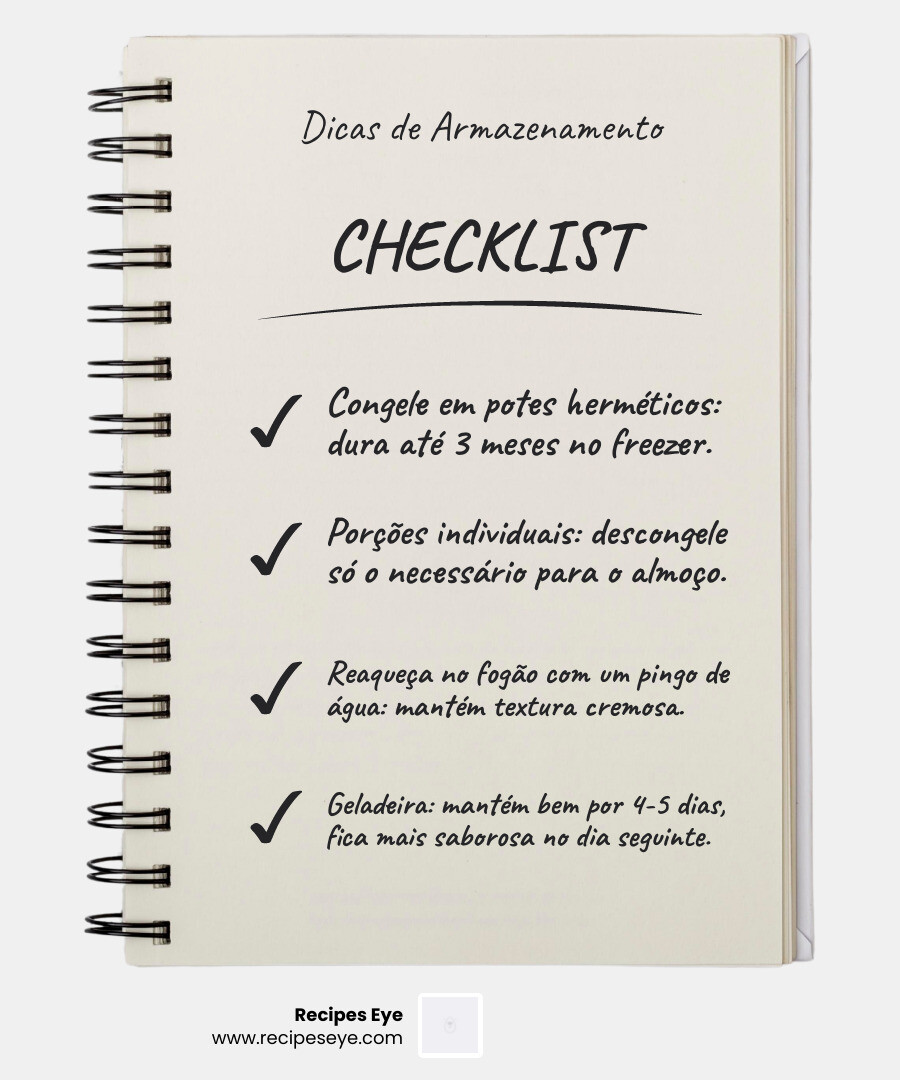 Dicas de Armazenamento
CHECKLIST
Congele em potes herméticos:
dura até 3 meses no freezer.
Porções individuais: descongele
só o necessário para o almoço.
Reaqueça no fogão com um pingo de
água: mantém textura cremosa.
Geladeira: mantém bem por 4-5 dias,
fica mais saborosa no dia seguinte.
Recipes Eye
www.recipeseye.com